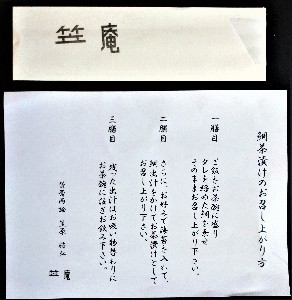 竺庵
鯛茶漬けのお召し上がり方
一膳目
ご飯をお茶碗に盛り
タレを絡めた鯛を乗せ
そのままお召し上がり下さい。
二膳目
さらに、お好みで海苔を入れて、
鯛出汁をかけてお茶漬けとして
お召し上がり下さい。
三膳目
残った出汁はお吸い物替わりに
お茶碗に注ぎお飲み下さい。
竺庵